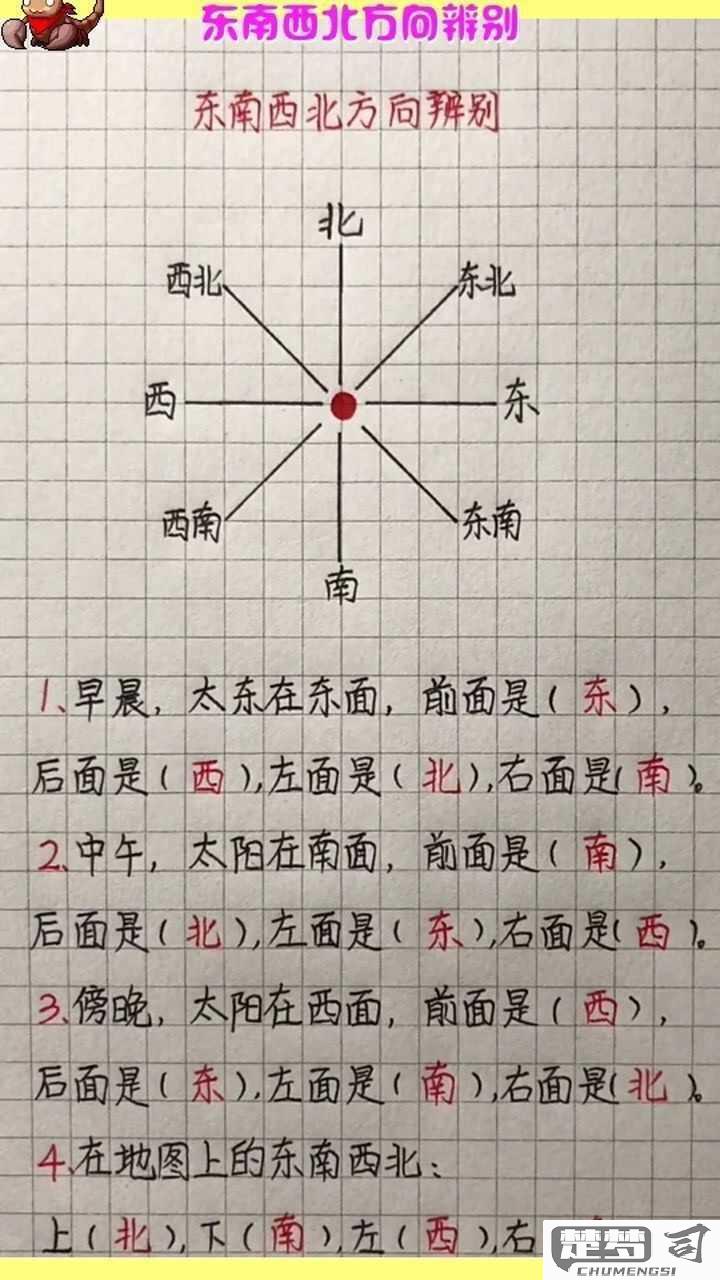 东南西北方向辨别
东南西北方向辨别
北
西北 东北
西 东
西南 东南
南
1、早晨，太东在东面，前面是（东），
后面是（西），左面是（北），右面是（南）。
2、中午，太阳在南面，前面是（南），
后面是（北），左面是（东），右面是（西）。
3、傍晚，太阳在西面，前面是（西），
后面是（东），左面是（南），右面是（北）。
4、在地图上的东南西北：
上（北），下（南），左（西），右
楚梦司
CHUMENGSI